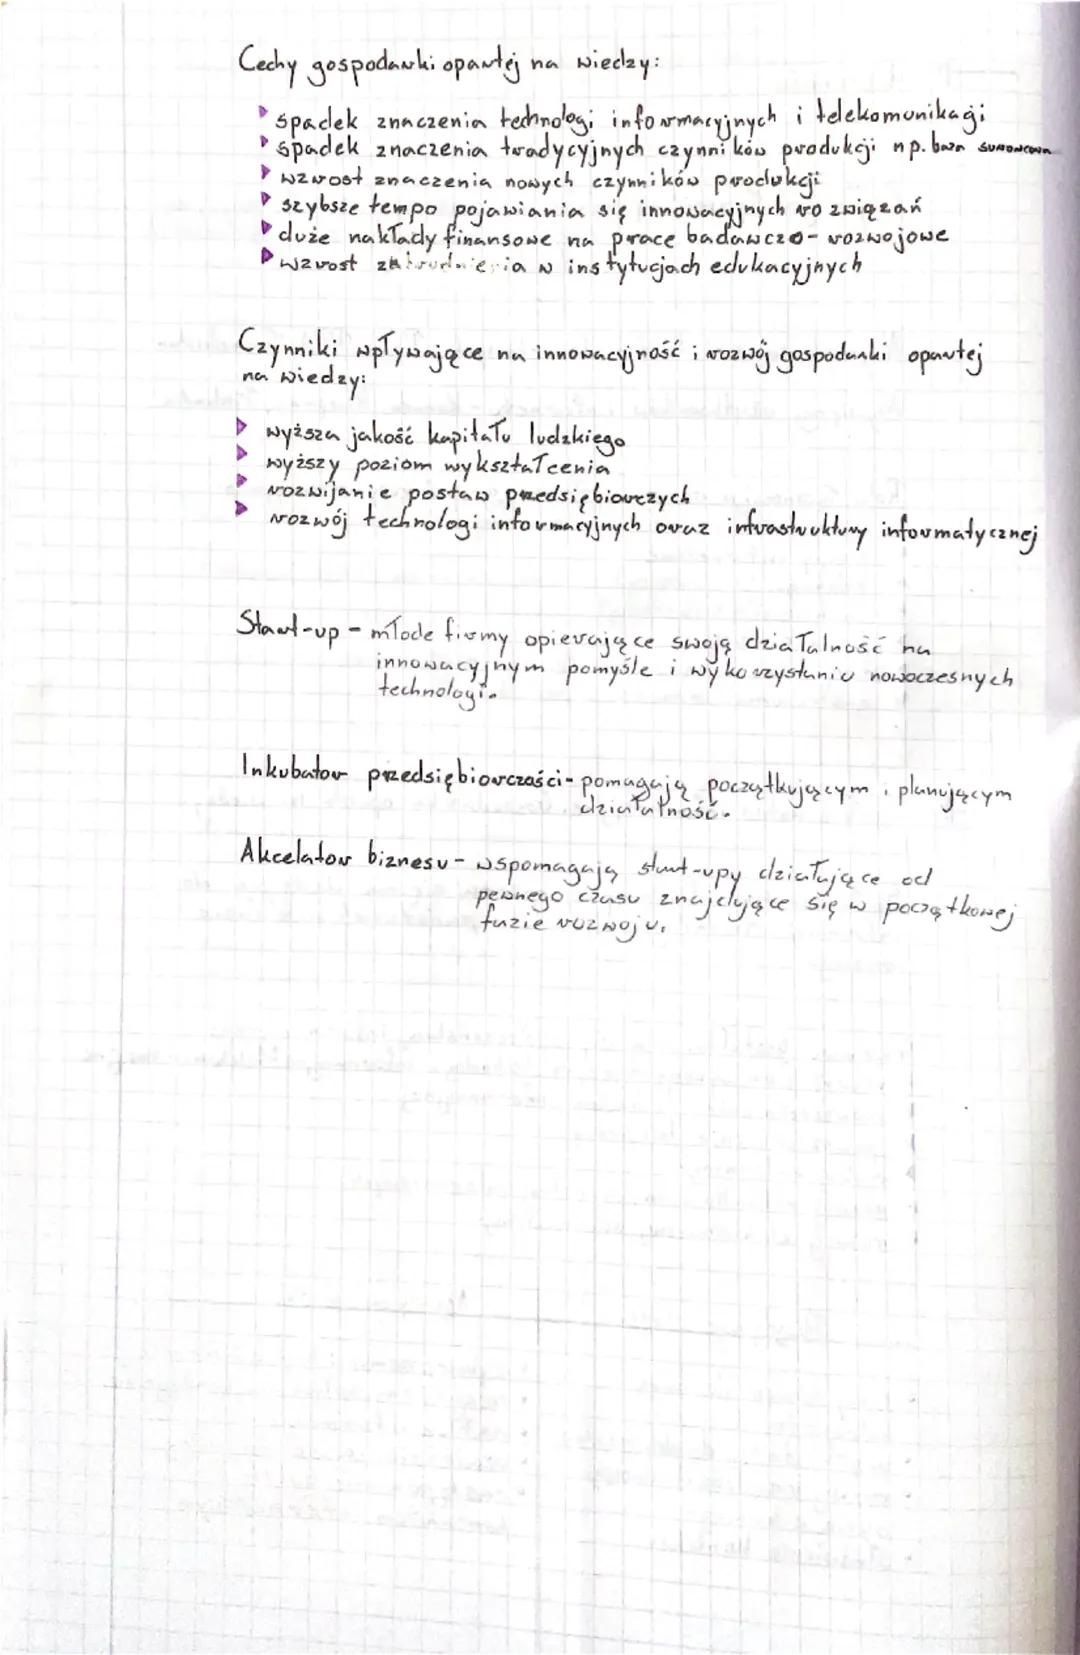 Cechy gospodarki opartej na wiedzy:
spadek znaczenia technologi informacyjnych i telekomunikacji
spadek znaczenia tradycyjnych czynników produkcji np. baza surowcowa
wzrost znaczenia nowych czynników produkcji
szybsze tempo pojawiania się innowacyjnych rozwiązań
duże nakłady finansowe na prace badawczo-rozwojowe
wzrost zatrudnienia w instytucjach edukacyjnych
Czynniki wpływające na innowacyjność i rozwój gospodarki opartej
na wiedzy:
wyższa jakość kapitału ludzkiego
wyższy poziom wykształcenia
rozwijanie postaw przedsiębiorczych
rozwój technologi informacyjnych oraz infrastruktury informatycznej
Start-up - młode firmy opierające swoją działalność na
innowacyjnym pomyśle i wykorzystaniu nowoczesnych
technologi.
Inkubator przedsiębiorczości - pomagają początkującym i planującym
działalność.
Akcelator biznesu - wspomagają start-upy działające od
pewnego czasu znajdujące się w początkowej
fazie rozwoju.